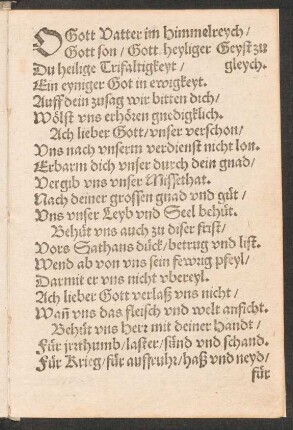 O Gott Vatter im Himmelreych /
Gott son / Gott heyliger Geyst zu
Du heilige Trifaltigkeyt / gleych.
Ein eyniger Got in ewigkeyt.
Auff dein zusag wir bitten dich /
Wölst vns erhören gnedigklich.
Ach lieber Gott / vnser verschon /
Vns nach vnserm verdienst nicht lon.
Erbarm dich vnser durch dein gnad /
Vergib vns vnser Missethat.
Nach deiner grossen gnad vnd güt /
Vns vnser Leyb vnd Seel behüt.
Behüt vns auch zu diser frist /
Vors Sathans dück / betrug vnd list.
Wend ab von vns sein fewrig pfeyl /
Darmit er vns nicht vbereyl.
Ach lieber Gott verlaß vns nicht /
Wañ vns das fleisch vnd welt anficht.
Behüt vns Herr mit deiner Handt /
Für jrrthumb / laster / sünd vnd schand.
Für Krieg / für auffruhr / haß vnd neyd /
für